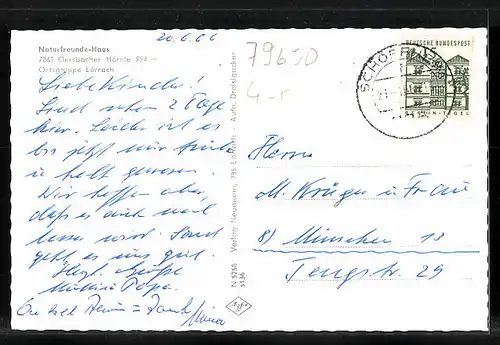 20.6.66
Naturfreunde-Haus
7861 Gersbacher Hörnle 994 m
Ortsgruppe Lörrach
Liebe Kinder!
Sind schon 2 Tage
hier. Leider ist es
bis jetzt nur
u kalt gewesen.
Wir hoffen aber,
daß es auch mal
besser wird. Sonst
geht es uns gut.
Hzgl. Grüße
Papa.
Onkel
Verlag Neumann, 785 Lörrach - Aufn. Dreisigacker
N 5758
s136
79650
4-r
SCHOPFHEIM
DEUTSCHE BUNDESPOST
TEGEL
Herrn
M. Krüger u Frau
8) München 13
Tengstr. 29